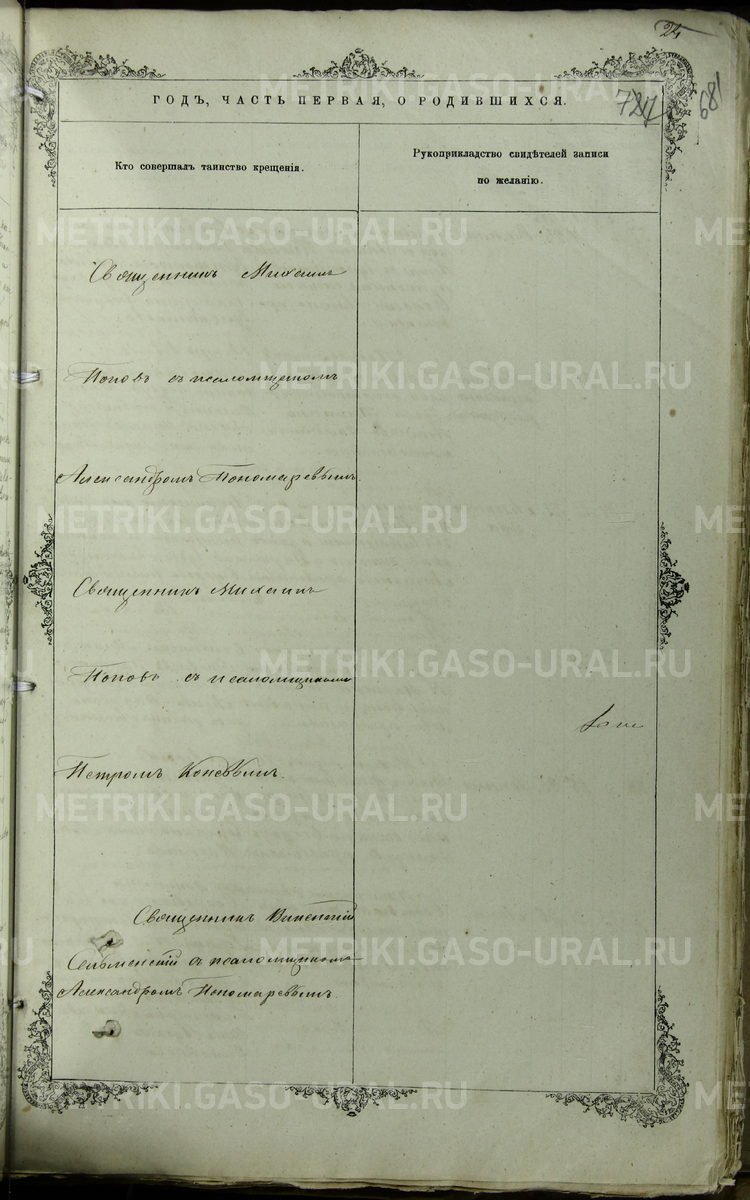 24
ГОДЪ, ЧАСТЬ ПЕРВАЯ, О РОДИВШИХСЯ.
681
Кто совершалъ таинство крещенія.
Рукоприкладство свидѣтелей записи
по желанію.
METRIKI.GASO-URAL.RU
Священникъ Михаилъ
Поповъ съ псаломщикомъ
Александромъ Пономаревымъ.
Священникъ Михаилъ
Поповъ съ псаломщикомъ
Петромъ Коневымъ.
Священникъ
съ псаломщикомъ
Александромъ Пономаревымъ.